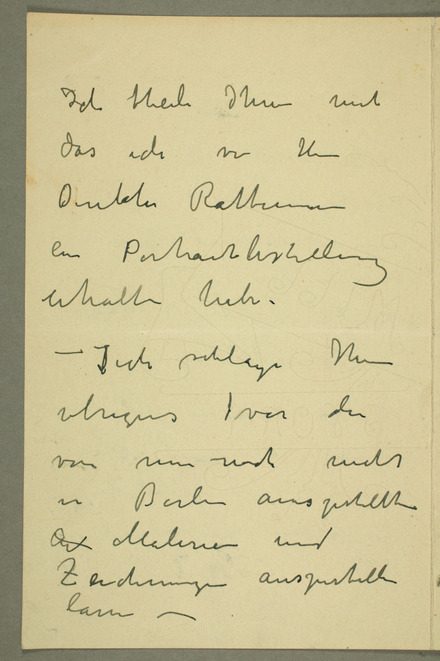 Ich theile Ihnen mit
das ich von Hn
Direktor Rathenau
ein Portraitbestellung
erhalten habe.
— Ich schlage Ihnen
übrigens vor die
von mir noch nicht
in Berlin ausgestellten
Malerien und
Zeichnungen ausgestellt
lassen —